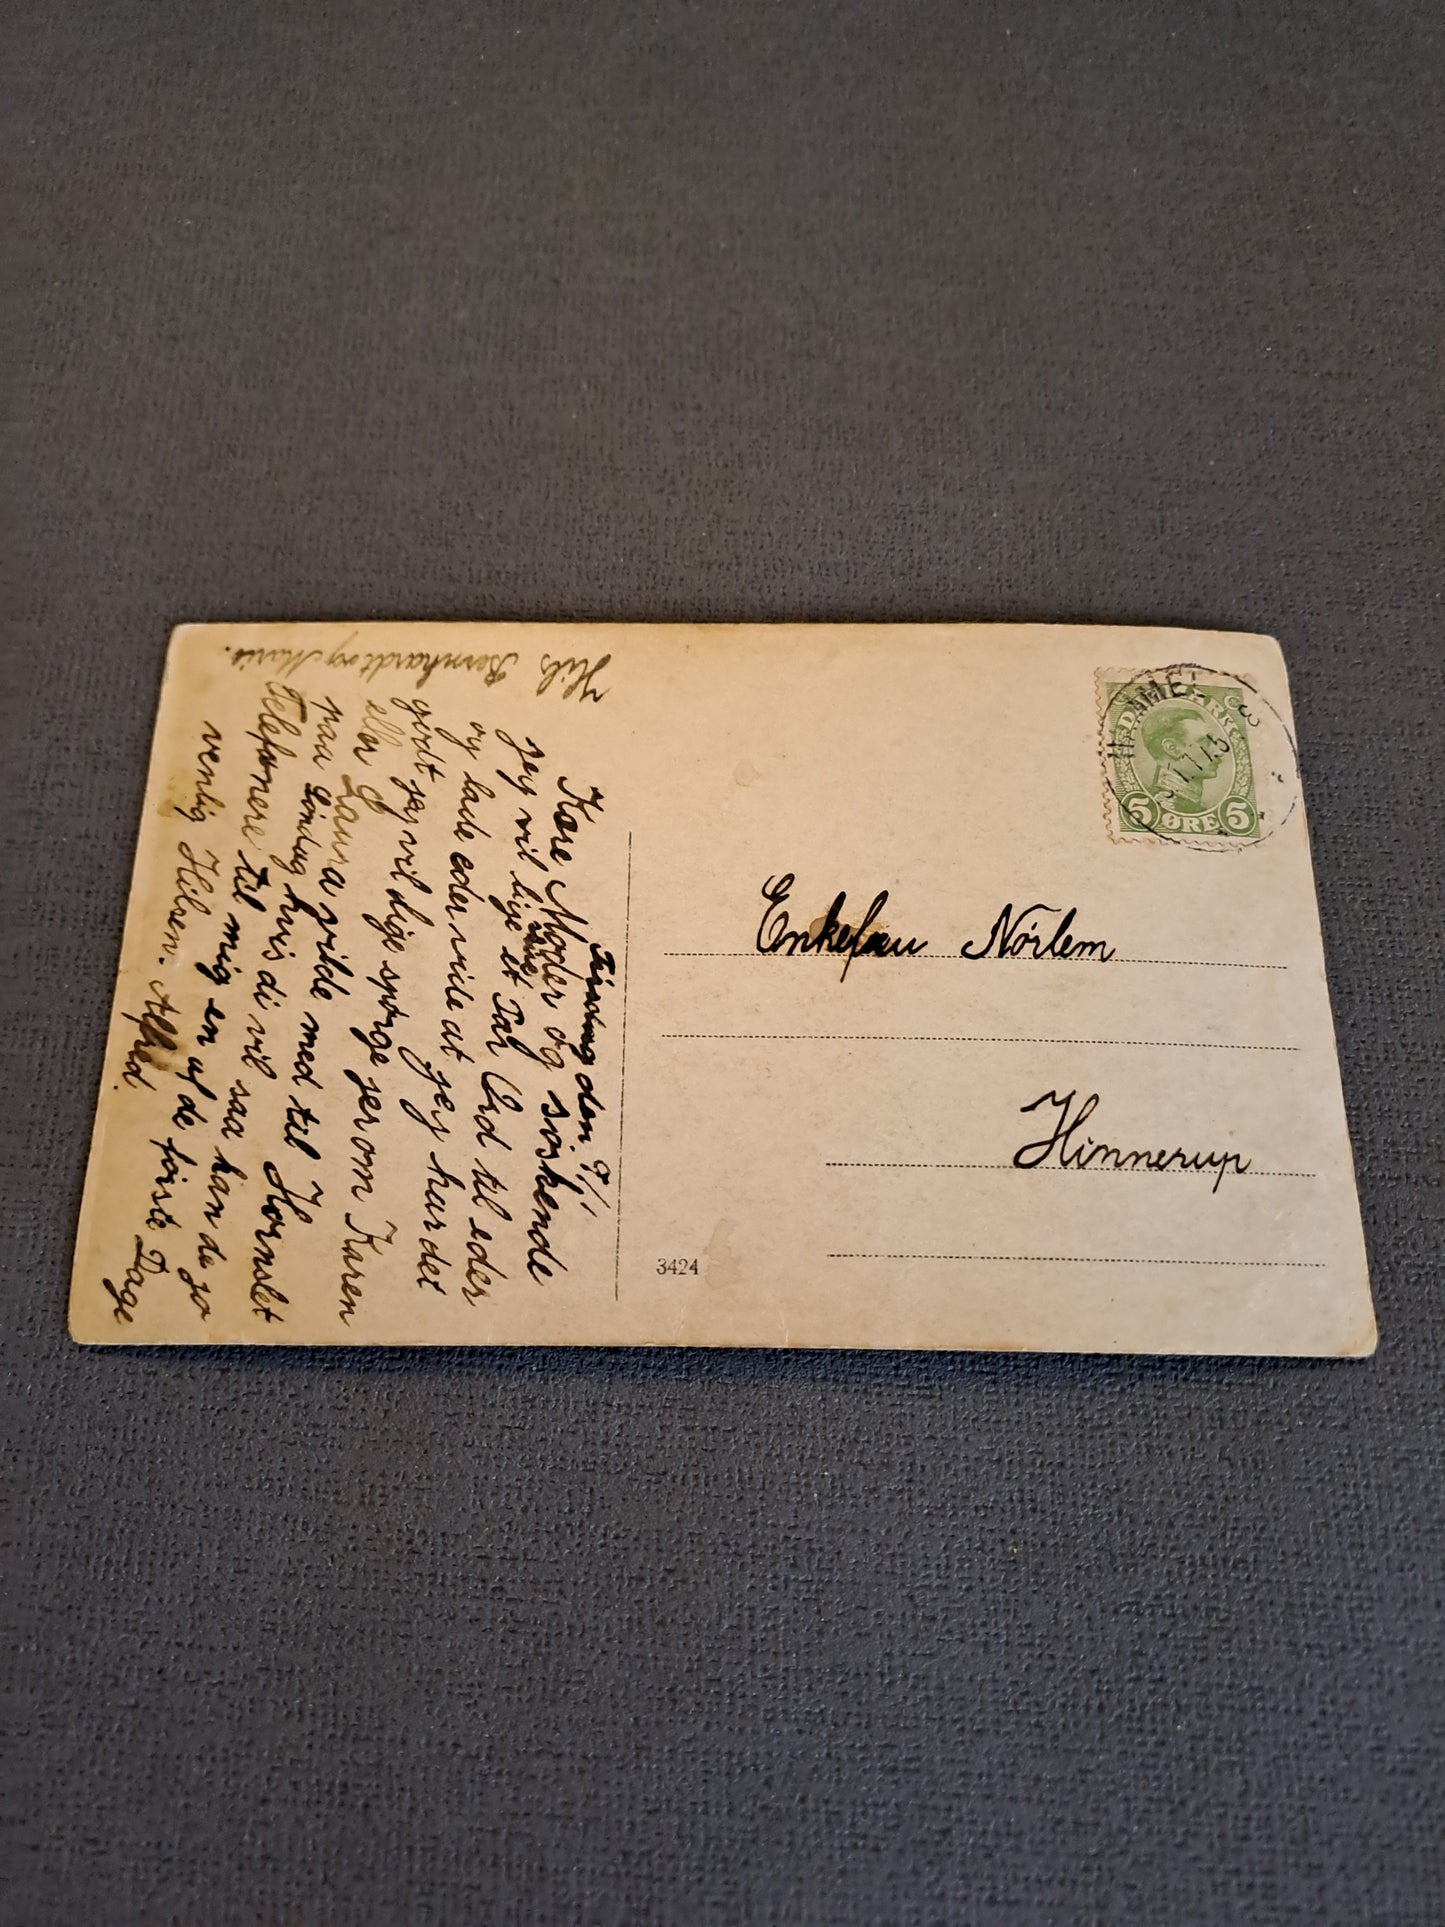 Kære Moder og søskende
jeg vil lige et Par Ord til eder
og lade eder vide at jeg har det
godt jeg vil lige spørge jer om Karen
eller Laura vilde med til Hornslet
paa Søndag hvis di vil saa kan de jo
Telefonere til mig en af de første Dage
venlig Hilsen. Alfred.
Hils Bernhardt og Marie.
DANMARK
5 ØRE 5
HAMMEL
Enkefrau Nörlem
Hinnerup
3424